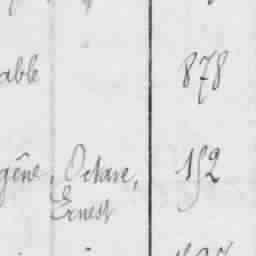 able 878
gêne, Octave, 152
Ernest